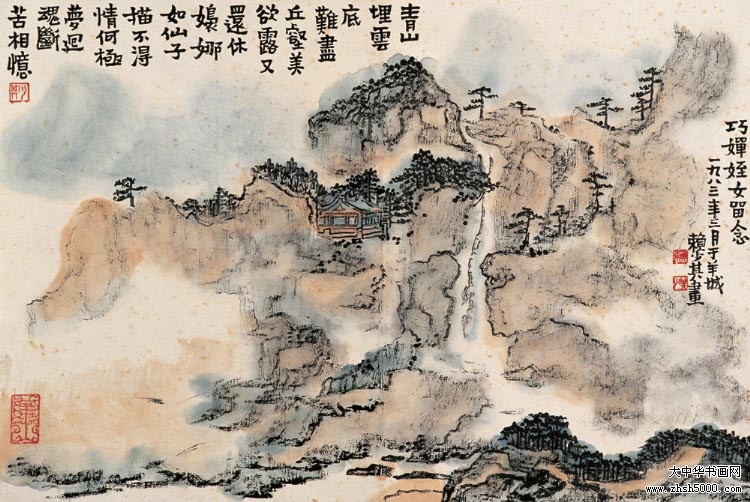 巧嬋姪女留念
一九八三年三月于羊城
賴少其畫
青山
埋雲
底
難盡
丘壑美
欲露又
還休
嬝娜
如仙子
描不得
情何極
夢迴
魂斷
苦相憶
大中华书画网
www.zhsh5000.com